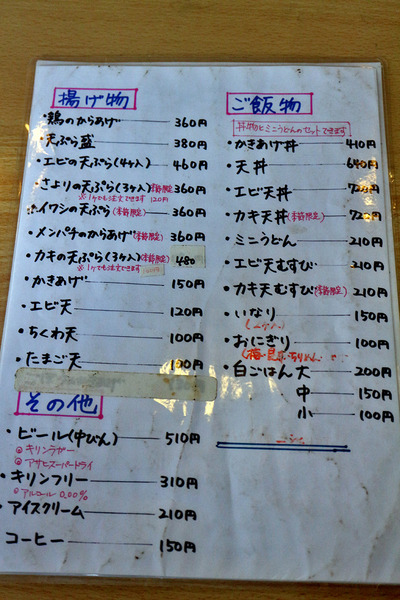 揚げ物
・鶏のからあげ 360円
・天ぷら盛 380円
・エビの天ぷら(4ヶ入) 460円
・さよりの天ぷら(3ヶ入)(季節限定) 360円
※1ヶでも注文できます 120円
・イワシの天ぷら(季節限定) 360円
・メンパチのからあげ(季節限定) 360円
・カキの天ぷら(3ヶ入)(季節限定) 480
※1ケでも注文できます
・かきあげ 150円
・エビ天 120円
・ちくわ天 100円
・たまご天 100円
その他
・ビール(中びん) 510円
キリンラガー
アサヒスーパードライ
・キリンフリー 310円
アルコール 0.00%
・アイスクリーム 210円
コーヒー 150円
ご飯物
丼物とミニうどんのセットできます
・かきあげ丼 410円
・天丼 640円
・エビ天丼
・カキ天丼(季節限定)
・ミニうどん 210円
・エビ天むすび 210円
・カキ天むすび(季節限定) 210円
・いなり 150円
・おにぎり 100円
・白ごはん 大 200円
中 150円
小 100円